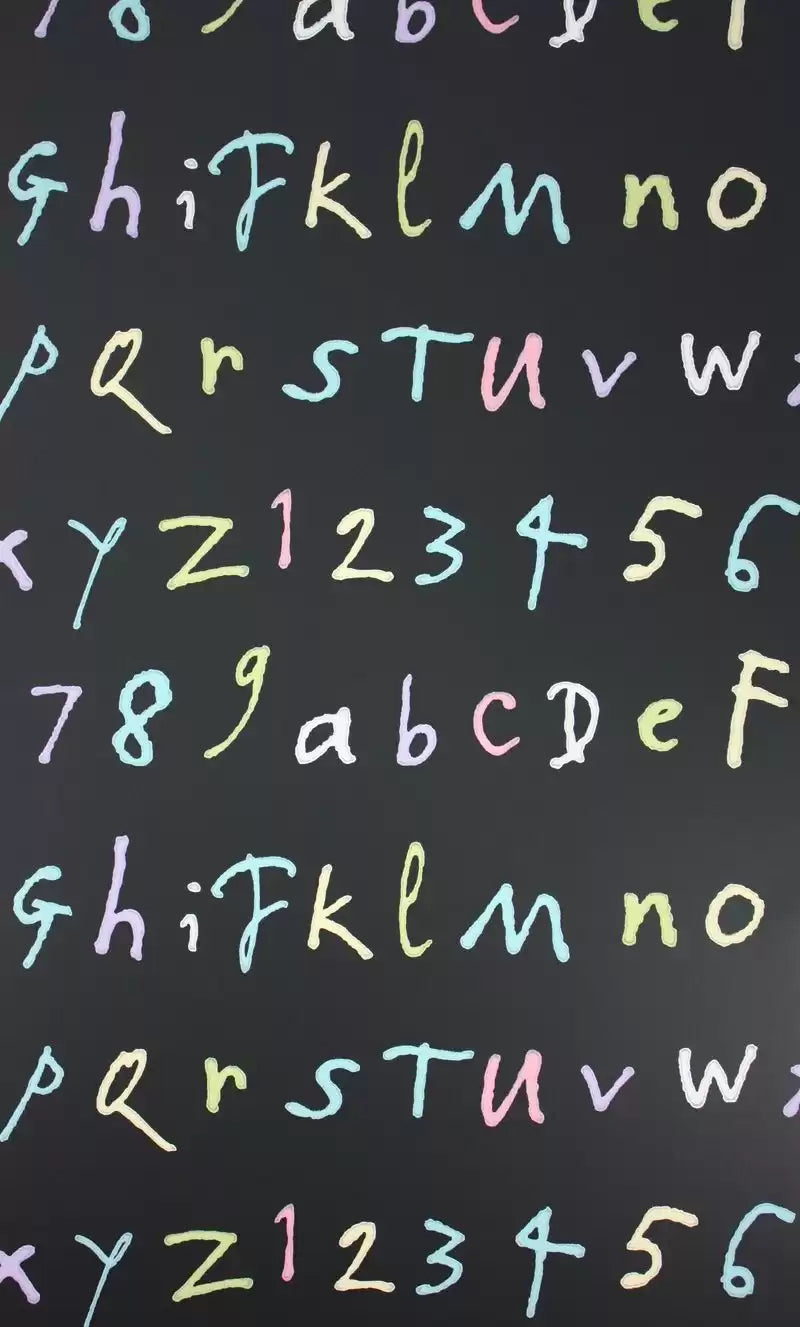 7 8 9 a b c D e F
G h i J k l M n o
p Q r s T u v w x
x y z 1 2 3 4 5 6
7 8 9 a b c D e F
G h i J k l M n o
p Q r s T u v w x
x y z 1 2 3 4 5 6